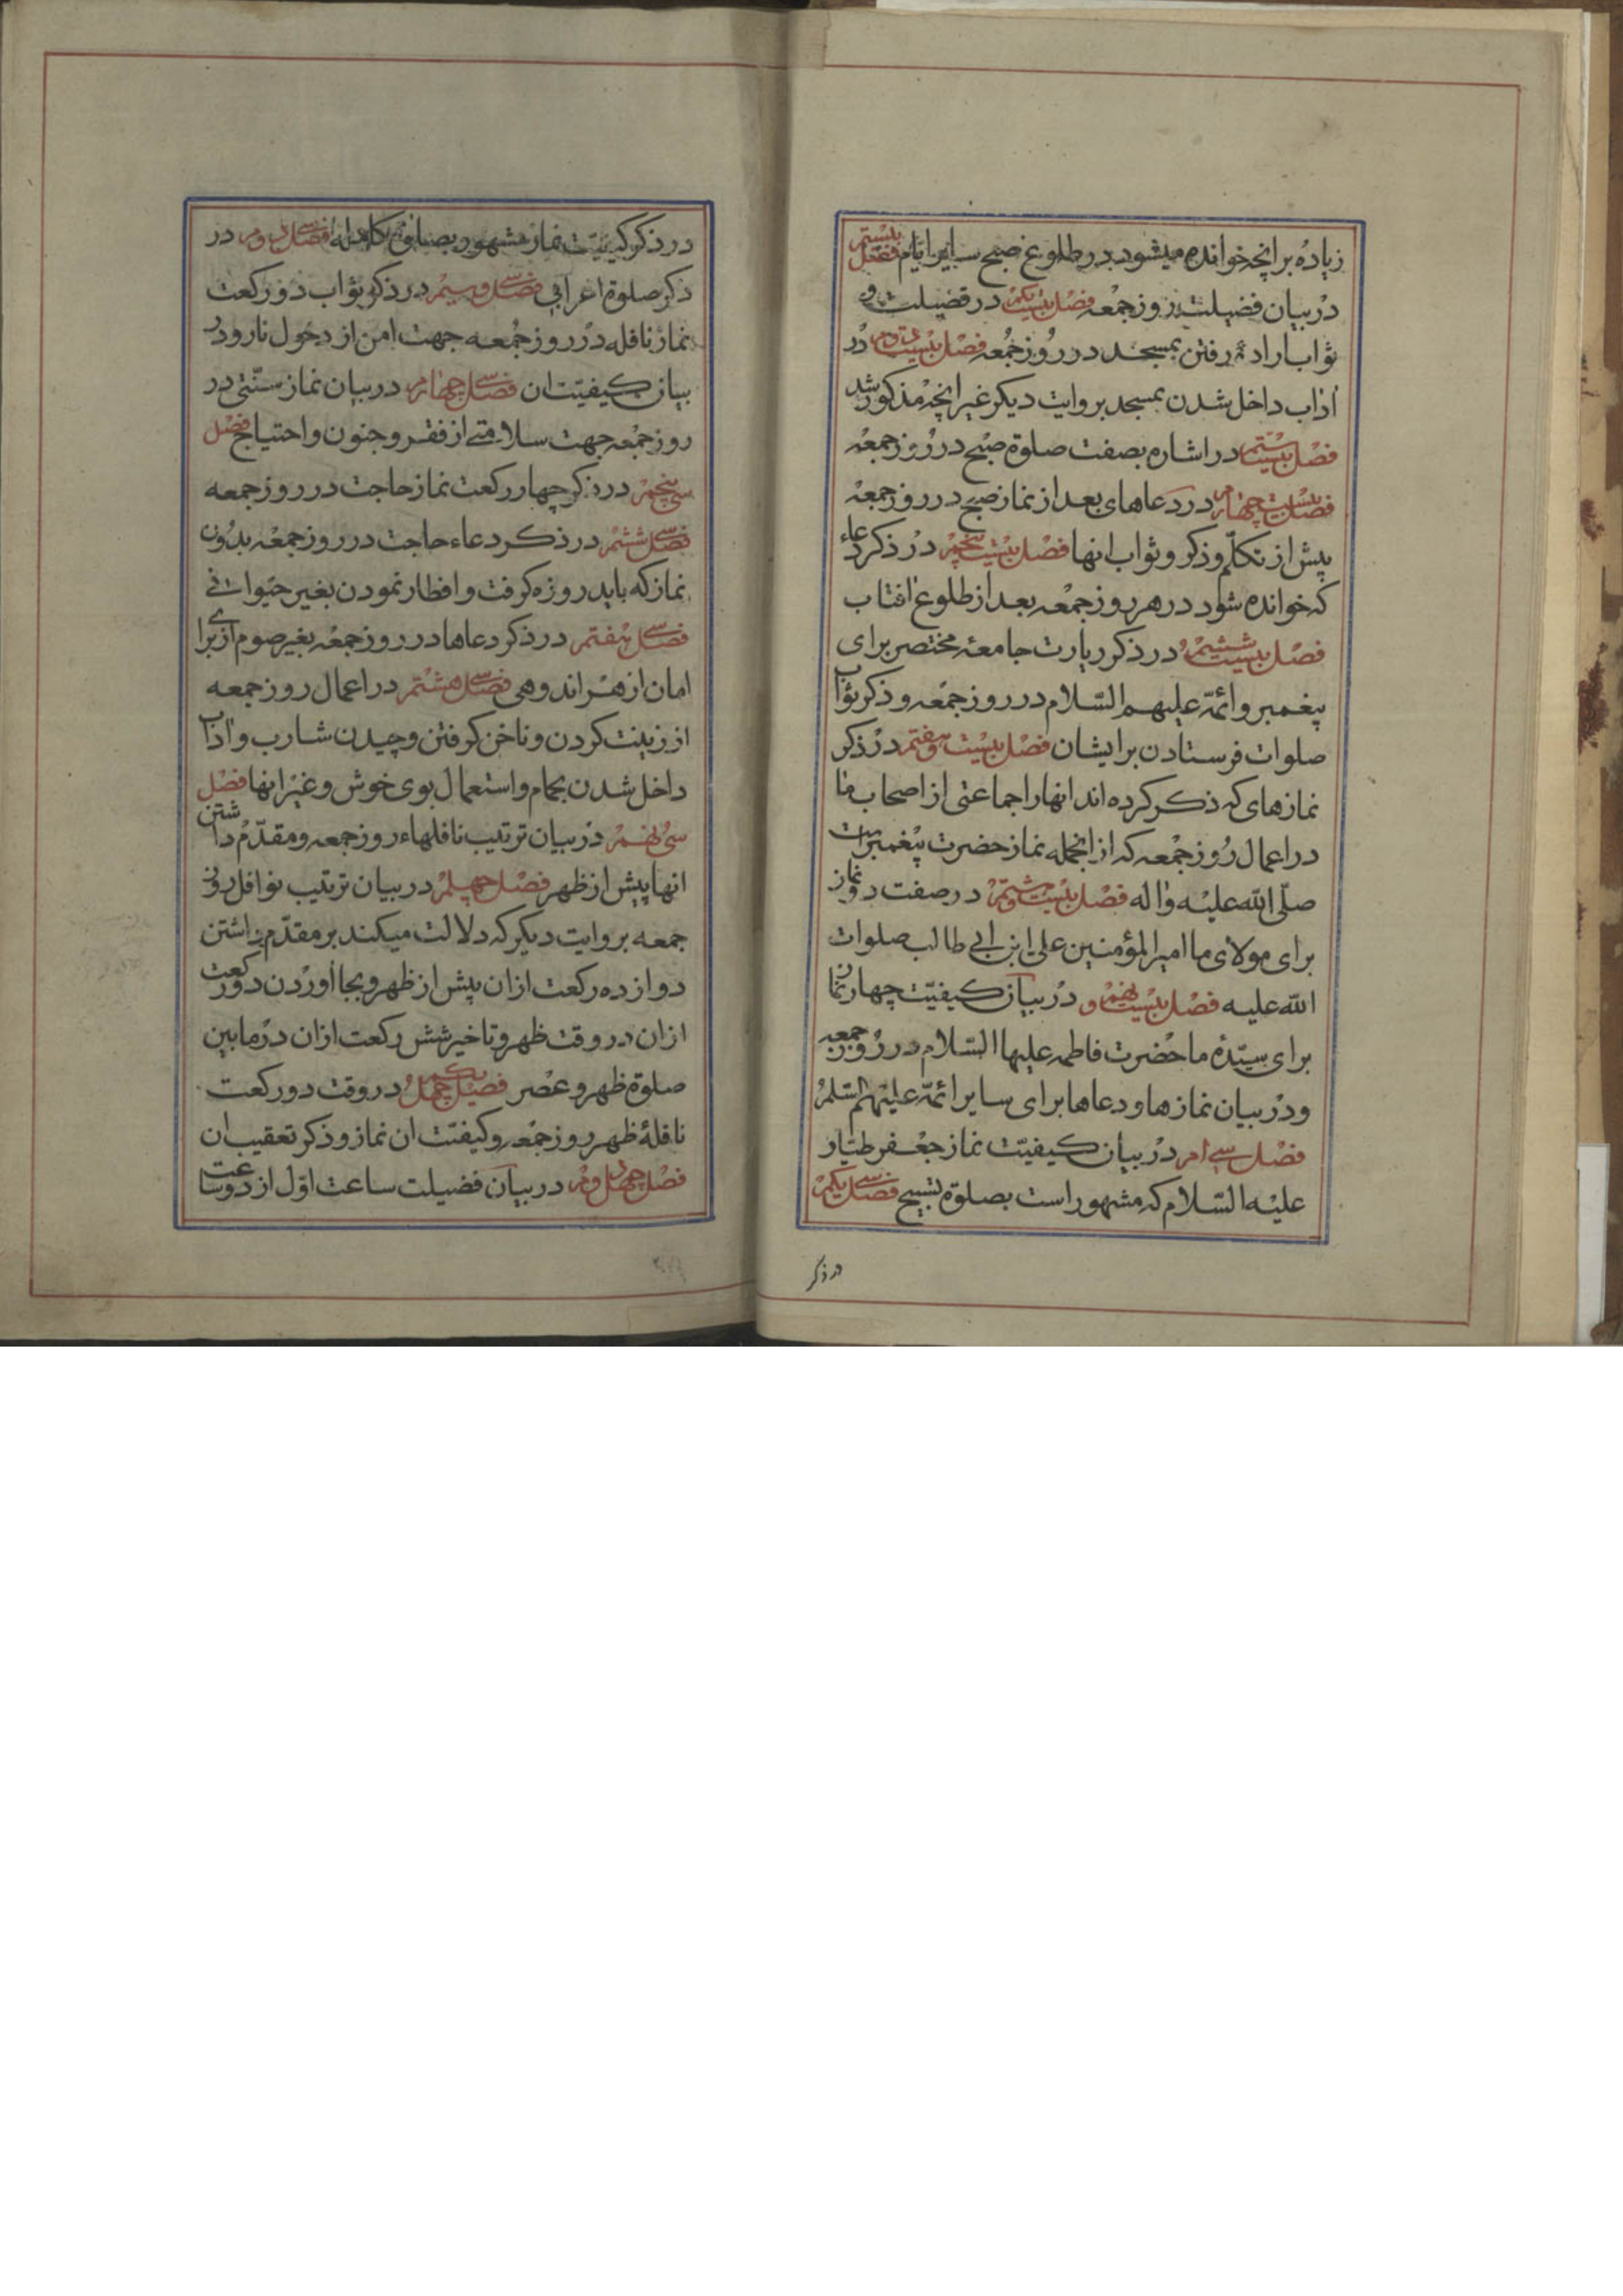 زیاده بر انچه خوانده میشود در طلوع صبح سایر ایام فصل بیستم
در بیان فضیلت روز جمعه فصل بیست یکم در فضیلت و
ثواب اراده رفتن بمسجد در روز جمعه فصل بیست دوم در
اداب داخل شدن بمسجد بروایت دیکر غیر انچه مذکور شد
فصل بیست سیم در اشاره بصفت صلوة صبح در روز جمعه
فصل بیست چهارم در دعاهای بعد از نماز صبح در روز جمعه
پیش از تکلّم و ذکر و ثواب انها فصل بیست پنجم در ذکر دعاء
که خوانده شود در هر روز جمعه بعد از طلوع افتاب
فصل بیست ششم در ذکر زیارت جامعهٔ مختصر برای
پیغمبر و ائمّه علیهم السّلام در روز جمعه و ذکر ثواب
صلوات فرستادن بر ایشان فصل بیست و هفتم در ذکر
نمازهای که ذکر کرده اند انها را جماعتی از اصحاب ما
در اعمال روز جمعه که از انجمله نماز حضرت پیغمبرست
صلّی الله علیه واله فصل بیست و هشتم در صفت دو نماز
برای مولای ما امیر المؤمنین علی ابن ابی طالب صلوات
الله علیه فصل بیست و نهم در بیان کیفیّت چهار نماز
برای سیّدهٔ ما حضرت فاطمه علیها السّلام در روز جمعه
و در بیان نمازها و دعاها برای سایر ائمّه علیهم السّلم
فصل سی ام در بیان کیفیّت نماز جعفر طیّار
علیه السّلام که مشهور است بصلوة تسبیح فصل سی یکم
در ذکر
در ذکر کیفیّت نماز مشهور بصلوة کامله فصل سی دوم در
ذکر صلوة اعرابی فصل سی و سیم در ذکر ثواب دو رکعت
نماز نافله در روز جمعه جهت امن از دخول نار و در
بیان کیفیّت ان فصل سی چهارم در بیان نماز سنّتی در
روز جمعه جهت سلامتی از فقر و جنون و احتیاج فصل
سی پنجم در ذکر چهار رکعت نماز حاجت در روز جمعه
فصل سی ششم در ذکر دعاء حاجت در روز جمعه بدون
نماز که باید روزه کرفت و افطار نمودن بغیر حیوانی
فصل سی هفتم در ذکر دعاها در روز جمعه بغیر صوم از برای
امان از هر اندوهی فصل سی هشتم در اعمال روز جمعه
از زینت کردن و ناخن کرفتن و چیدن شارب و اداب
داخل شدن بحمام و استعمال بوی خوش و غیر انها فصل
سی نهم در بیان ترتیب نافلهاء روز جمعه و مقدّم داشتن
انها پیش از ظهر فصل چهلم در بیان ترتیب نوافل روز
جمعه بروایت دیکر که دلالت میکند بر مقدّم داشتن
دوازده رکعت ازان پیش از ظهر و بجا اوردن دو رکعت
ازان در وقت ظهر و تاخیر شش رکعت ازان در مابین
صلوة ظهر و عصر فصل چهل یکم در وقت دو رکعت
نافلهٔ ظهر روز جمعه و کیفیّت ان نماز و ذکر تعقیب ان
فصل چهل دوم در بیان فضیلت ساعت اوّل از دو ساعت